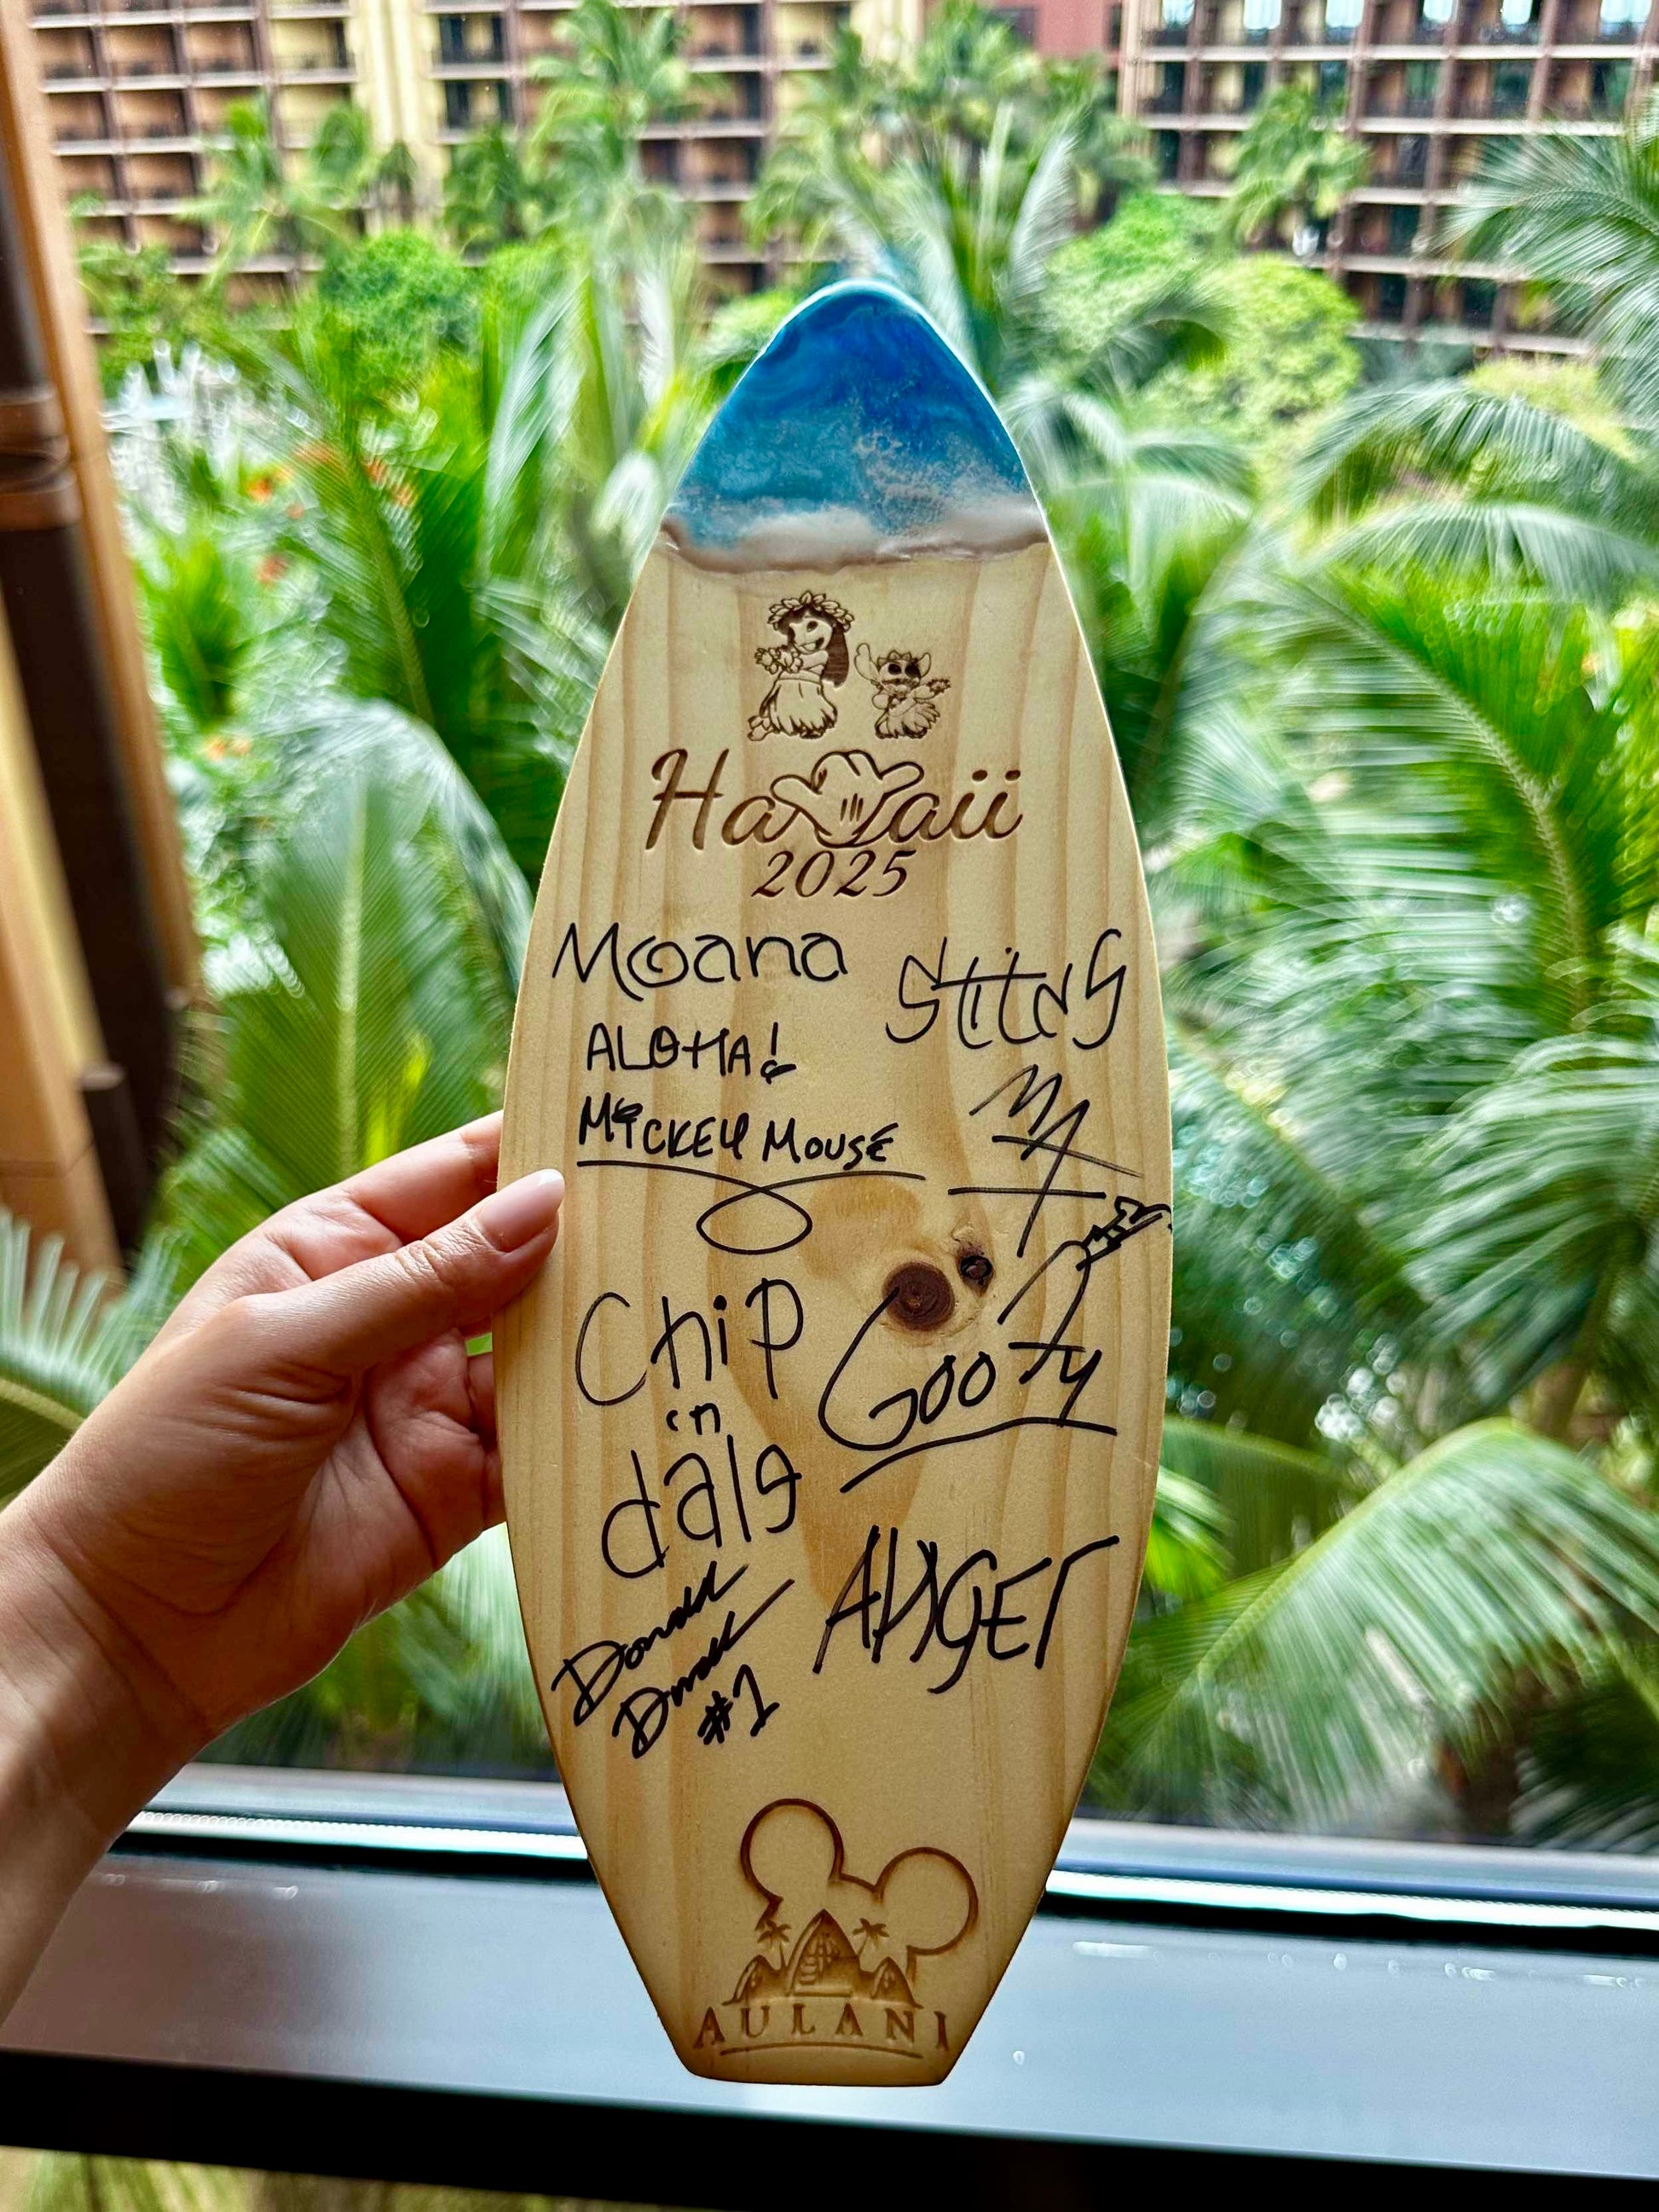 Hawaii
2025
Moana
Stitch
ALOHA!
MICKEY MOUSE
MAX
Chip
'n
dale
Goofy
Donald
Duck
#1
ANGEL
AULANI